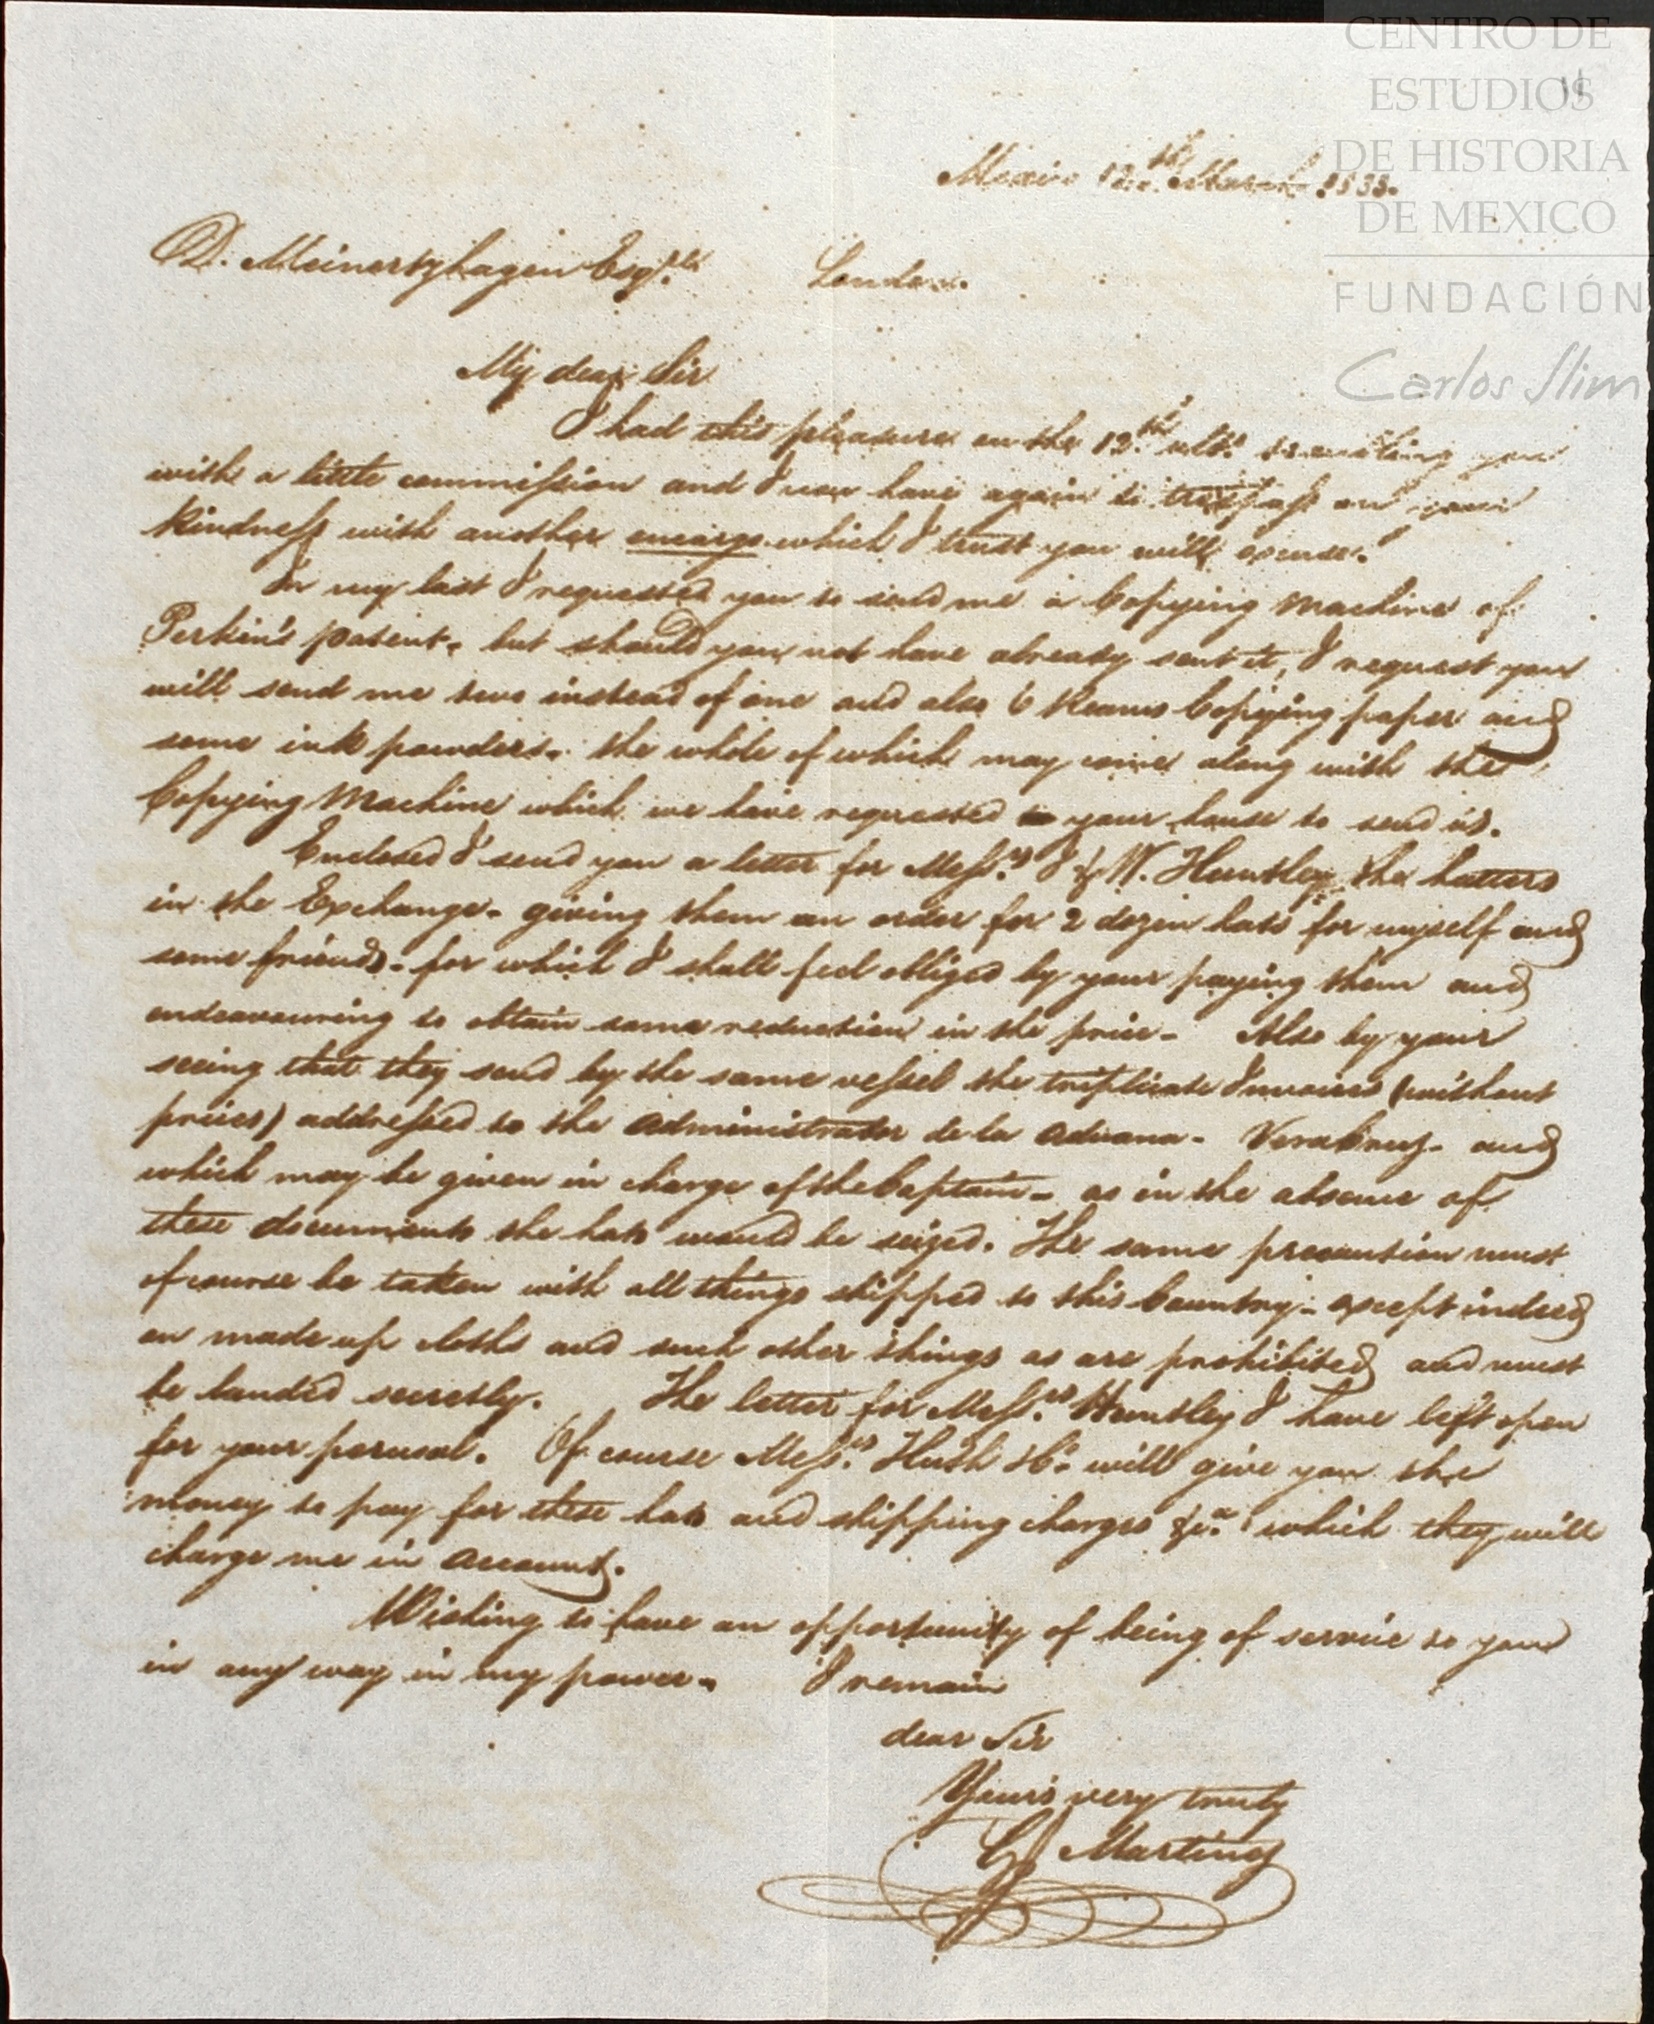 CENTRO DE
ESTUDIOS
DE HISTORIA
DE MEXICO
FUNDACIÓN
Carlos Slim
11
Mexico 12th March 1833.
D. Meinertzhagen Esqre London.
My dear Sir
I had this pleasure on the 13th ulto. troubling you
with a little commission and I now have again to trespass on your
kindness with another encargo which I trust you will excuse.
In my last I requested you to send me a Copying Machine of
Perkin's patent. but should you not have already sent it, I request you
will send me two instead of one and also 6 Reams Copying paper and
some ink powders. the whole of which may come along with the
Copying Machine which we have requested your house to send us.
Enclosed I send you a letter for Messrs. J & W. Huntley the hatters
in the Exchange. giving them an order for 2 dozen hats for myself and
some friends. for which I shall feel obliged by your paying them and
endeavouring to obtain some reduction in the price. Also by your
seeing that they send by the same vessel the triplicate Invoices (without
prices) addressed to the Administrator de la Aduana. Vera Cruz. and
which may be given in charge of the Captain. as in the absence of
these documents the hats would be seized. The same precaution must
of course be taken with all things shipped to this Country. except indeed
on made up cloths and such other things as are prohibited and must
be landed secretly. The letter for Messrs. Huntley I have left open
for your perusal. Of course Messrs. Huth & Co. will give you the
money to pay for these hats and shipping charges &ca. which they will
charge me in account.
Wishing to have an opportunity of being of service to you
in any way in my power. I remain
dear Sir
Yours very truly
Martinez